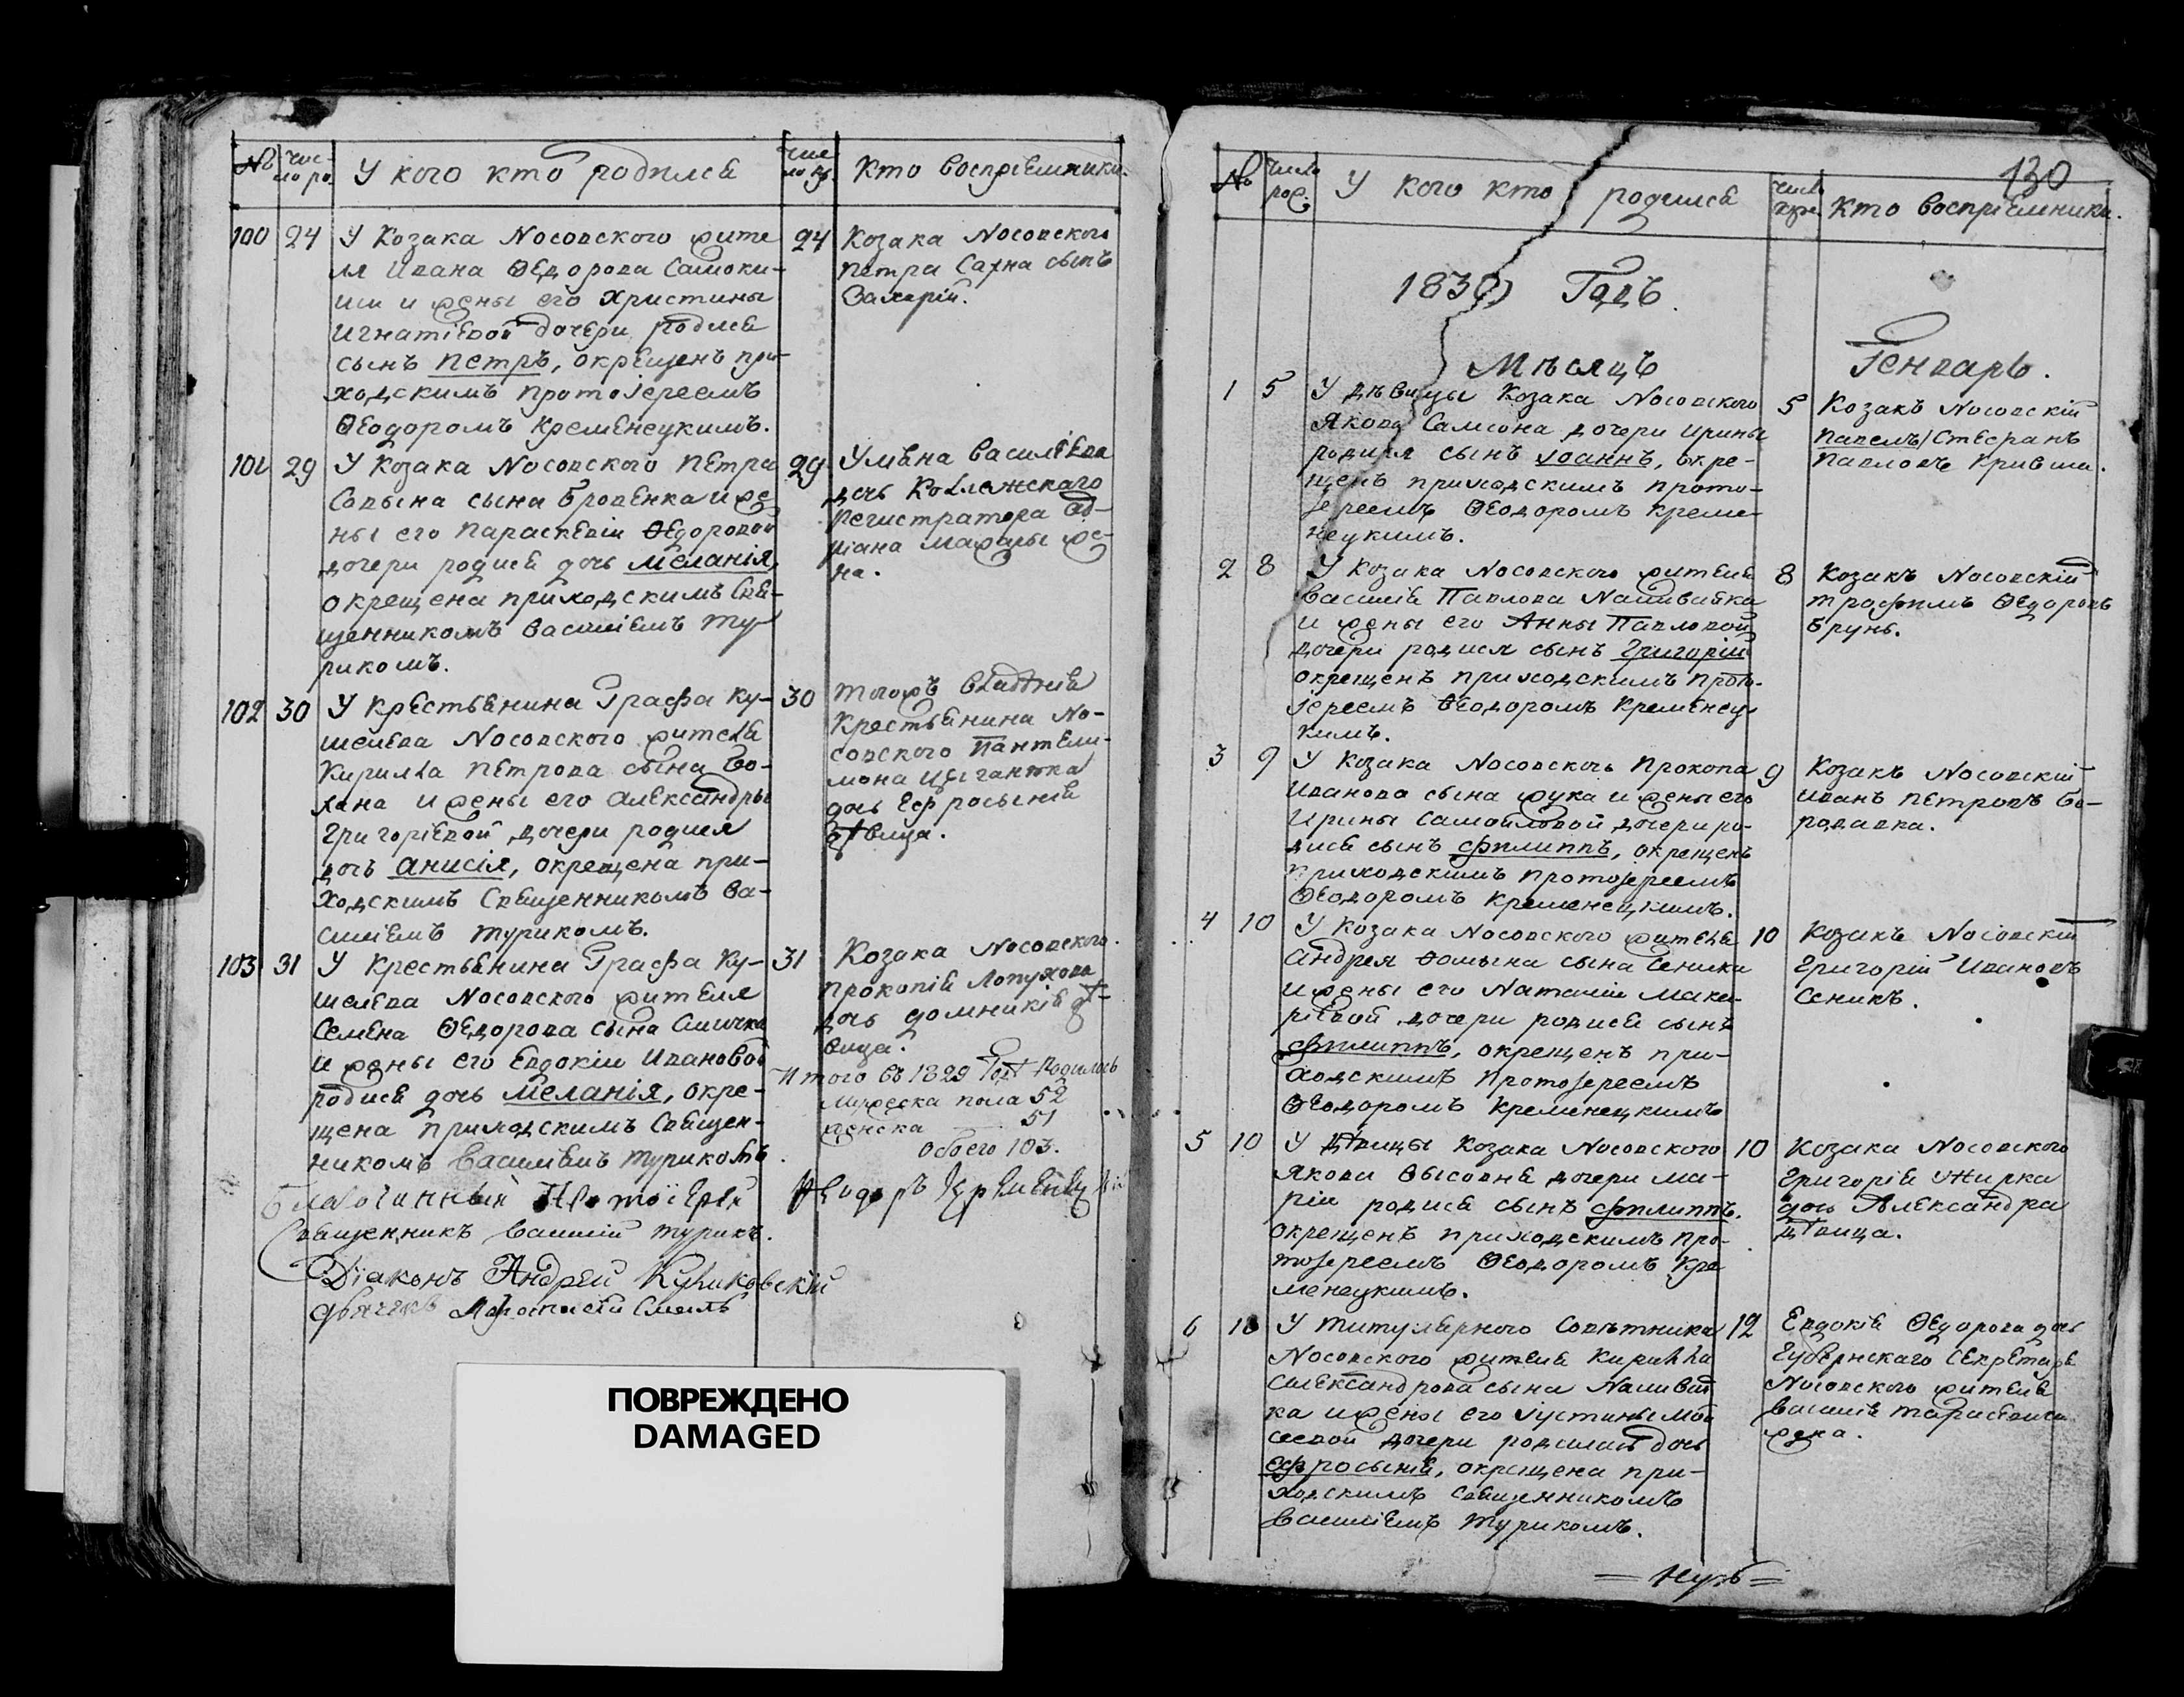 №
Чис-
ло ро.
У кого кто родился
Чис
ло кр.
Кто воспріемники.
100 24 У Козака Носовского жите
ля Ивана Ѳедорова Самоки-
ши и жены его Христины
Игнатіевой дочери родися
сынъ Петръ, окрещенъ при-
ходскимъ протоіереемъ
Ѳеодоромъ Кременецкимъ.
24 Козака Носовского
Петра Сахна сынъ
Захарій.
101 29 У Козака Носовского Петра
сына Бровенка и же
ны его Параскевіи Ѳедоровой
дочери родися дочь Меланія,
окрещена приходскимъ Свя-
щенникомъ Василіемъ Ту-
рикомъ.
29 Ульяна Василіева
дочь Коллежскаго
Регистратора Ад-
ріана жe-
на.
102 30 У Крестьянина Графа Ку-
шелева Носовского жителя
Кирилла Петрова сына Бо-
хана и жены его Александры
Григоріевой дочери родися
дочь Анисія, окрещена при-
ходскимъ Священникомъ Ва-
силіемъ Турикомъ.
30 тогожъ владѣнія
Крестьянина Но-
совского Пантели-
мона Цыганюка
дочь Ефросынія
дѣвица.
103 31 У Крестьянина Графа Ку-
шелева Носовского жителя
Семена Ѳедорова сына
и жены его Евдокіи Ивановой
родися дочь Меланія, окре-
щена приходскимъ Священ-
никомъ Василіемъ Турикомъ.
31 Козака Носовского
Прокопія Лопухова
дочь Домникія дѣ-
вица.
Итого въ 1829 Годѣ Родилось
мужеска пола 52
женска 51
обоего 103.
Благочинный Протоіерей Ѳеодоръ Кременецкій
Священникъ Василій Турикъ.
Діаконъ Андрей Куликовскій
Дьячекъ
ПОВРЕЖДЕНО
DAMAGED
130
№
Число
рož.
У кого кто родился
Число
кре.
Кто воспріемники.
1830 Годъ.
Мѣсяцъ Генварь.
1 5 У дѣвицы Козака Носовского
Якова Самсона дочери Ирины
родися сынъ Іоаннъ, окре-
щенъ приходскимъ прото-
іереемъ Ѳеодоромъ Креме-
нецкимъ.
5 Козакъ Носовскій
Павелъ/Стефанъ
Павловъ Кривша.
2 8 У Козака Носовского жителя
Василія Павлова Наливайка
и жены его Анны Павловой
дочери родися сынъ Григорій
окрещенъ приходскимъ Прото-
іереемъ Ѳеодоромъ Кременец-
кимъ.
8 Козакъ Носовскій
Трофимъ Ѳедоровъ
Брунь.
3 9 У Козака Носовского Прокопа
Иванова сына Жука и жены его
Ирины Самойловой дочери ро-
дися сынъ Филиппъ, окрещенъ
приходскимъ протоіереемъ
Ѳеодоромъ Кременецкимъ.
9 Козакъ Носовскій
Иванъ Петровъ Бо-
родавка.
4 10 У Козака Носовского жителя
Андрея Ѳомына сына Сеника
и жены его Наталіи Мака-
ріевой дочери родися сынъ
Филиппъ, окрещенъ при-
ходскимъ Протоіереемъ
Ѳеодоромъ Кременецкимъ
10 Козакъ Носовскій
Григорій Ивановъ
Сеникъ.
5 10 У Дѣвицы Козака Носовского
Якова дочери Ма-
ріи родися сынъ Филиппъ.
окрещенъ приходскимъ Про-
тоіереемъ Ѳеодоромъ Кре
менецкимъ.
10 Козака Носовского
Григорія Жирка
дочь Александра
дѣвица.
6 10 У Титулярного Совѣтника
Носовского жителя Кирилла
Александрова сына Наливай
ка и жены его Іустины Мой
сеевой дочери родилась дочь
Ефросынія, окрещена при-
ходскимъ Священникомъ
Василіемъ Турикомъ.
12 Евдокія Ѳедорова дочь
Губернскаго Секретаря
Носовского жителя
Василія Тарасевича
жена.